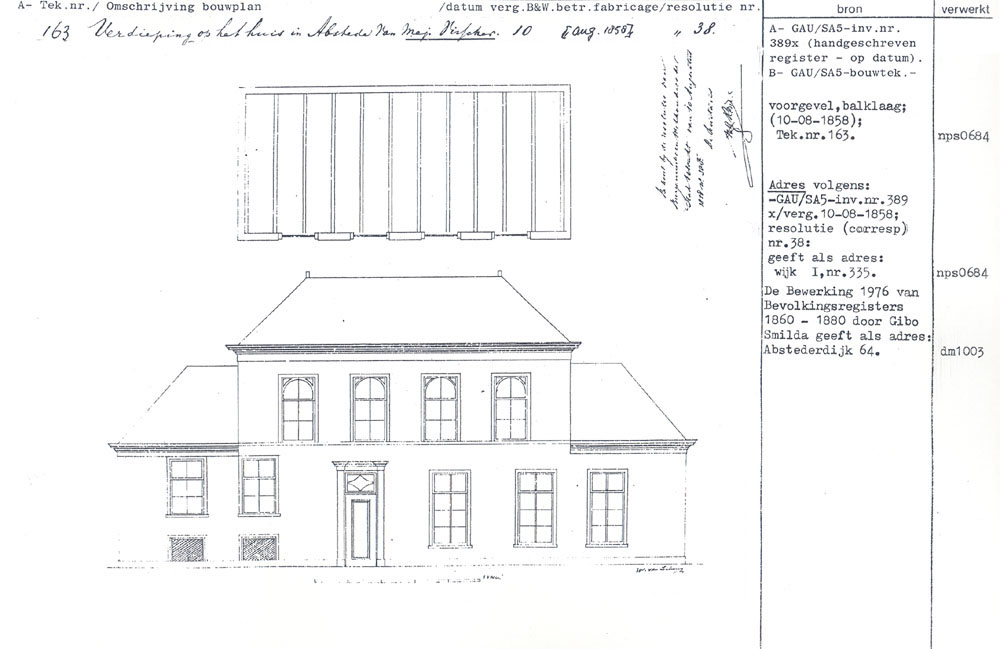 A- Tek.nr./ Omschrijving bouwplan /datum verg.B&W.betr.fabricage/resolutie nr.
163 Verdieping op het huis in Abstede van Mej. Visscher. 10 [aug. 1858] " 38.
bron
verwerkt
A- GAU/SA5-inv.nr.
389x (handgeschreven
register - op datum).
B- GAU/SA5-bouwtek.-
voorgevel,balklaag;
(10-08-1858);
Tek.nr.163. nps0684
Adres volgens:
-GAU/SA5-inv.nr.389
x/verg.10-08-1858;
resolutie (corresp)
nr.38:
geeft als adres:
wijk I,nr.335. nps0684
De Bewerking 1976 van
Bevolkingsregisters
1860 - 1880 door Gibo
Smilda geeft als adres:
Abstederdijk 64. dm1003